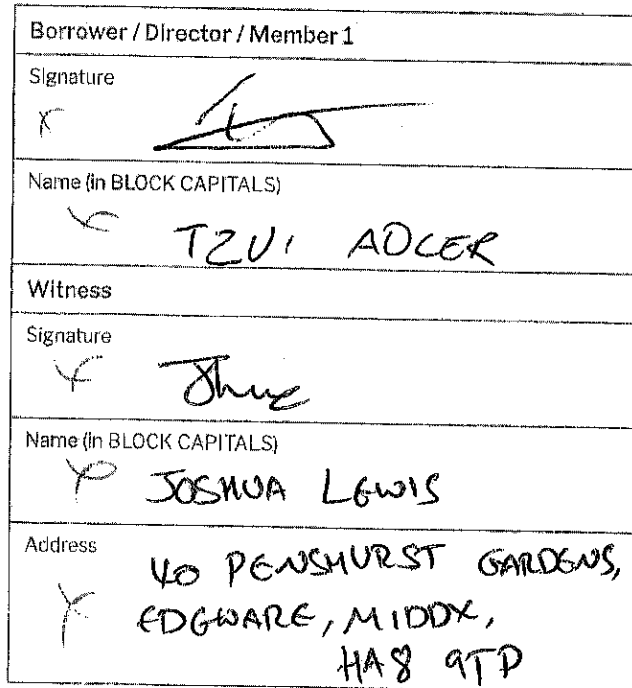 Borrower / Director / Member 1
Signature
Name (in BLOCK CAPITALS)
TZVI ADLER
Witness
Signature
Name (in BLOCK CAPITALS)
JOSHUA LEWIS
Address
40 PENSHURST GARDENS,
EDGWARE, MIDDX,
HA8 9TP